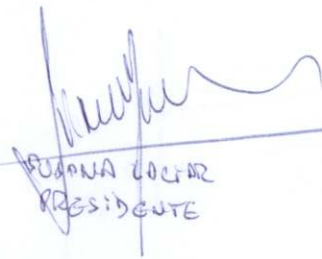 SUSANA LACIAR
PRESIDENTE